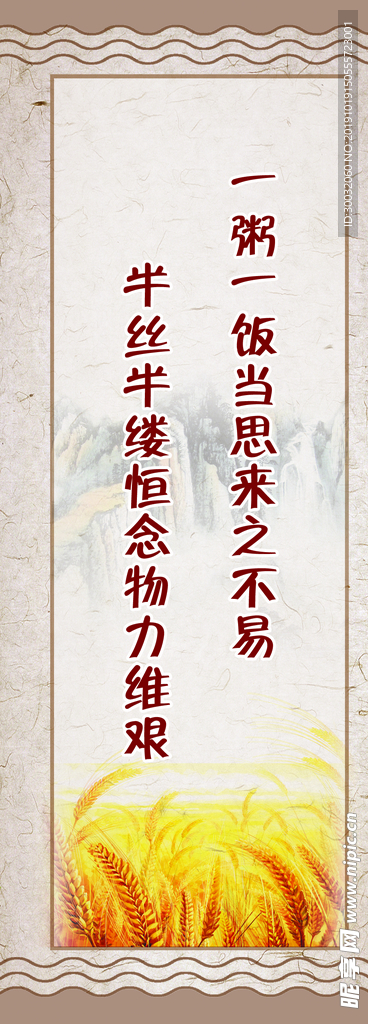 一粥一饭当思来之不易
半丝半缕恒念物力维艰
ID:30032060 NO:20191019150555723001
昵享网 www.nipic.cn